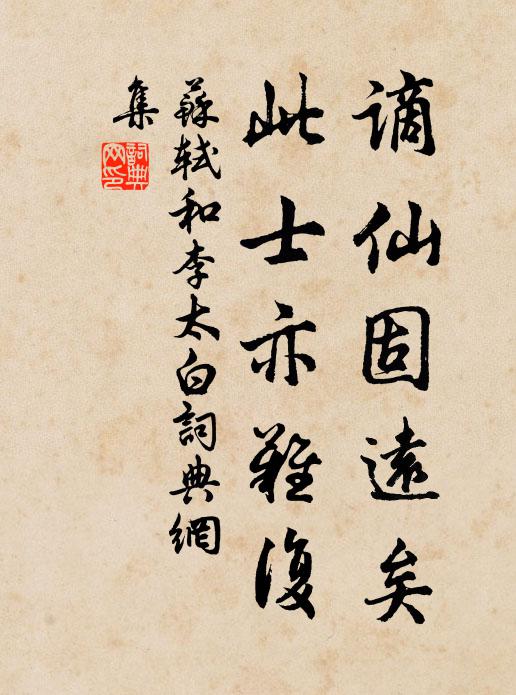 謫仙固遠矣
此士亦難復
蘇軾和李太白詞典網
集
詞典網印